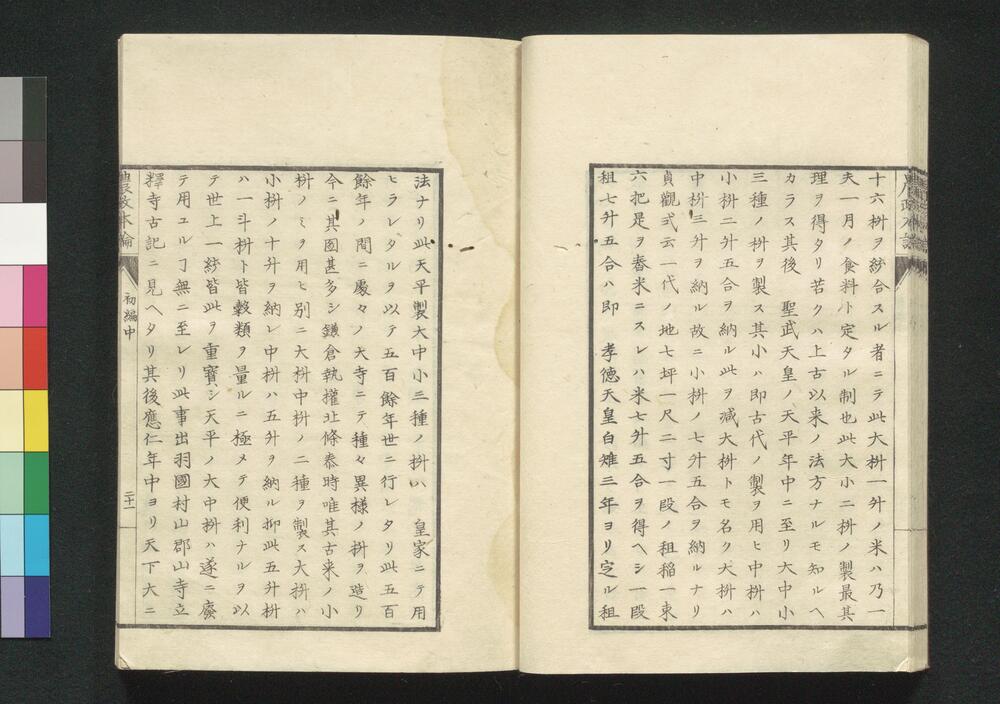 十六枡ヲ統合スル者ニテ此大枡一升ノ米ハ乃一
夫一月ノ食料ト定タル制也此大小二枡ノ製最其
理ヲ得タリ若クハ上古以来ノ法方ナルモ知ルヘ
カラス其後　聖武天皇ノ天平年中ニ至リ大中小
三種ノ枡ヲ製ス其小ハ即古代ノ製ヲ用ヒ中枡ハ
小枡二升五合ヲ納ル此ヲ減大枡トモ名ク大枡ハ
中枡三升ヲ納ル故ニ小枡ノ七升五合ヲ納ルナリ
貞觀式云一代ノ地七坪一尺二寸一段ノ租稲一束
六把是ヲ舂米ニスレハ米七升五合ヲ得ヘシ一段
租七升五合ハ即　孝徳天皇白雉三年ヨリ定ル租
法ナリ此天平製大中小三種ノ枡ハ　皇家ニテ用
ヒラレタルヲ以テ五百餘年世ニ行レタリ此五百
餘年ノ間ニ處々ノ大寺ニテ種々異様ノ枡ヲ造リ
今ニ其図甚多シ鎌倉執權北條泰時唯其古来ノ小
枡ノミヲ用ヒ別ニ大枡中枡ノ二種ヲ製ス大枡ハ
小枡ノ十升ヲ納レ中枡ハ五升ヲ納ル抑此五升枡
ハ一斗枡ト皆穀類ヲ量ルニ極メテ便利ナルヲ以
テ世上一統皆此ヲ重寳シ天平ノ大中枡ハ遂ニ廢
テ用ユルヿ無ニ至レリ此事出羽國村山郡山寺立
釋寺古記ニ見ヘタリ其後應仁年中ヨリ天下大ニ
農政本論
初編中
二十一